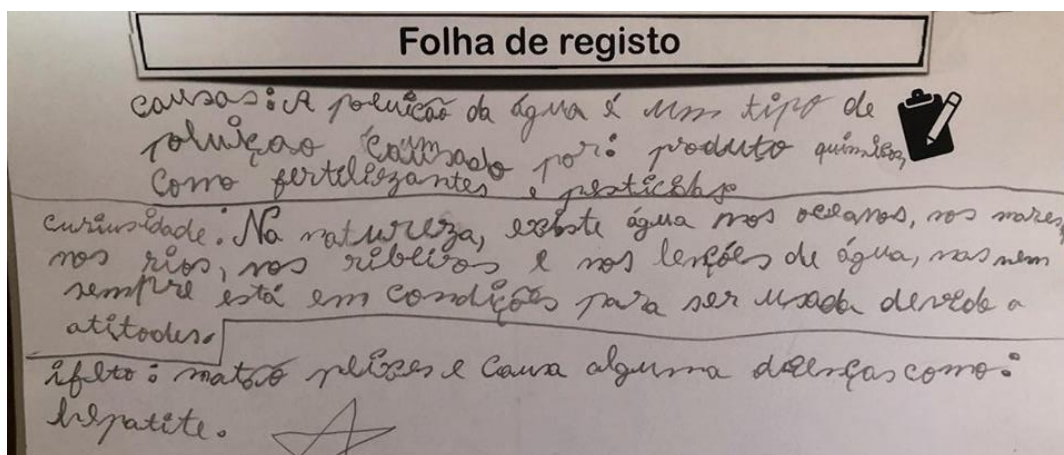 Folha de registo
causas: A poluição da água é um tipo de
poluiçao causado por: produto quimicos,
como ferteliezantes e pesticidas
curiusidade: Na natureza, existe água nos oceanos, nos mares,
nos rios, nos ribeiros e nos lençóes de água, mas nem
sempre está em condições para ser usada devido a
atitodes.
ifeito: matão peixes e causa alguma doenças como:
hepatite.